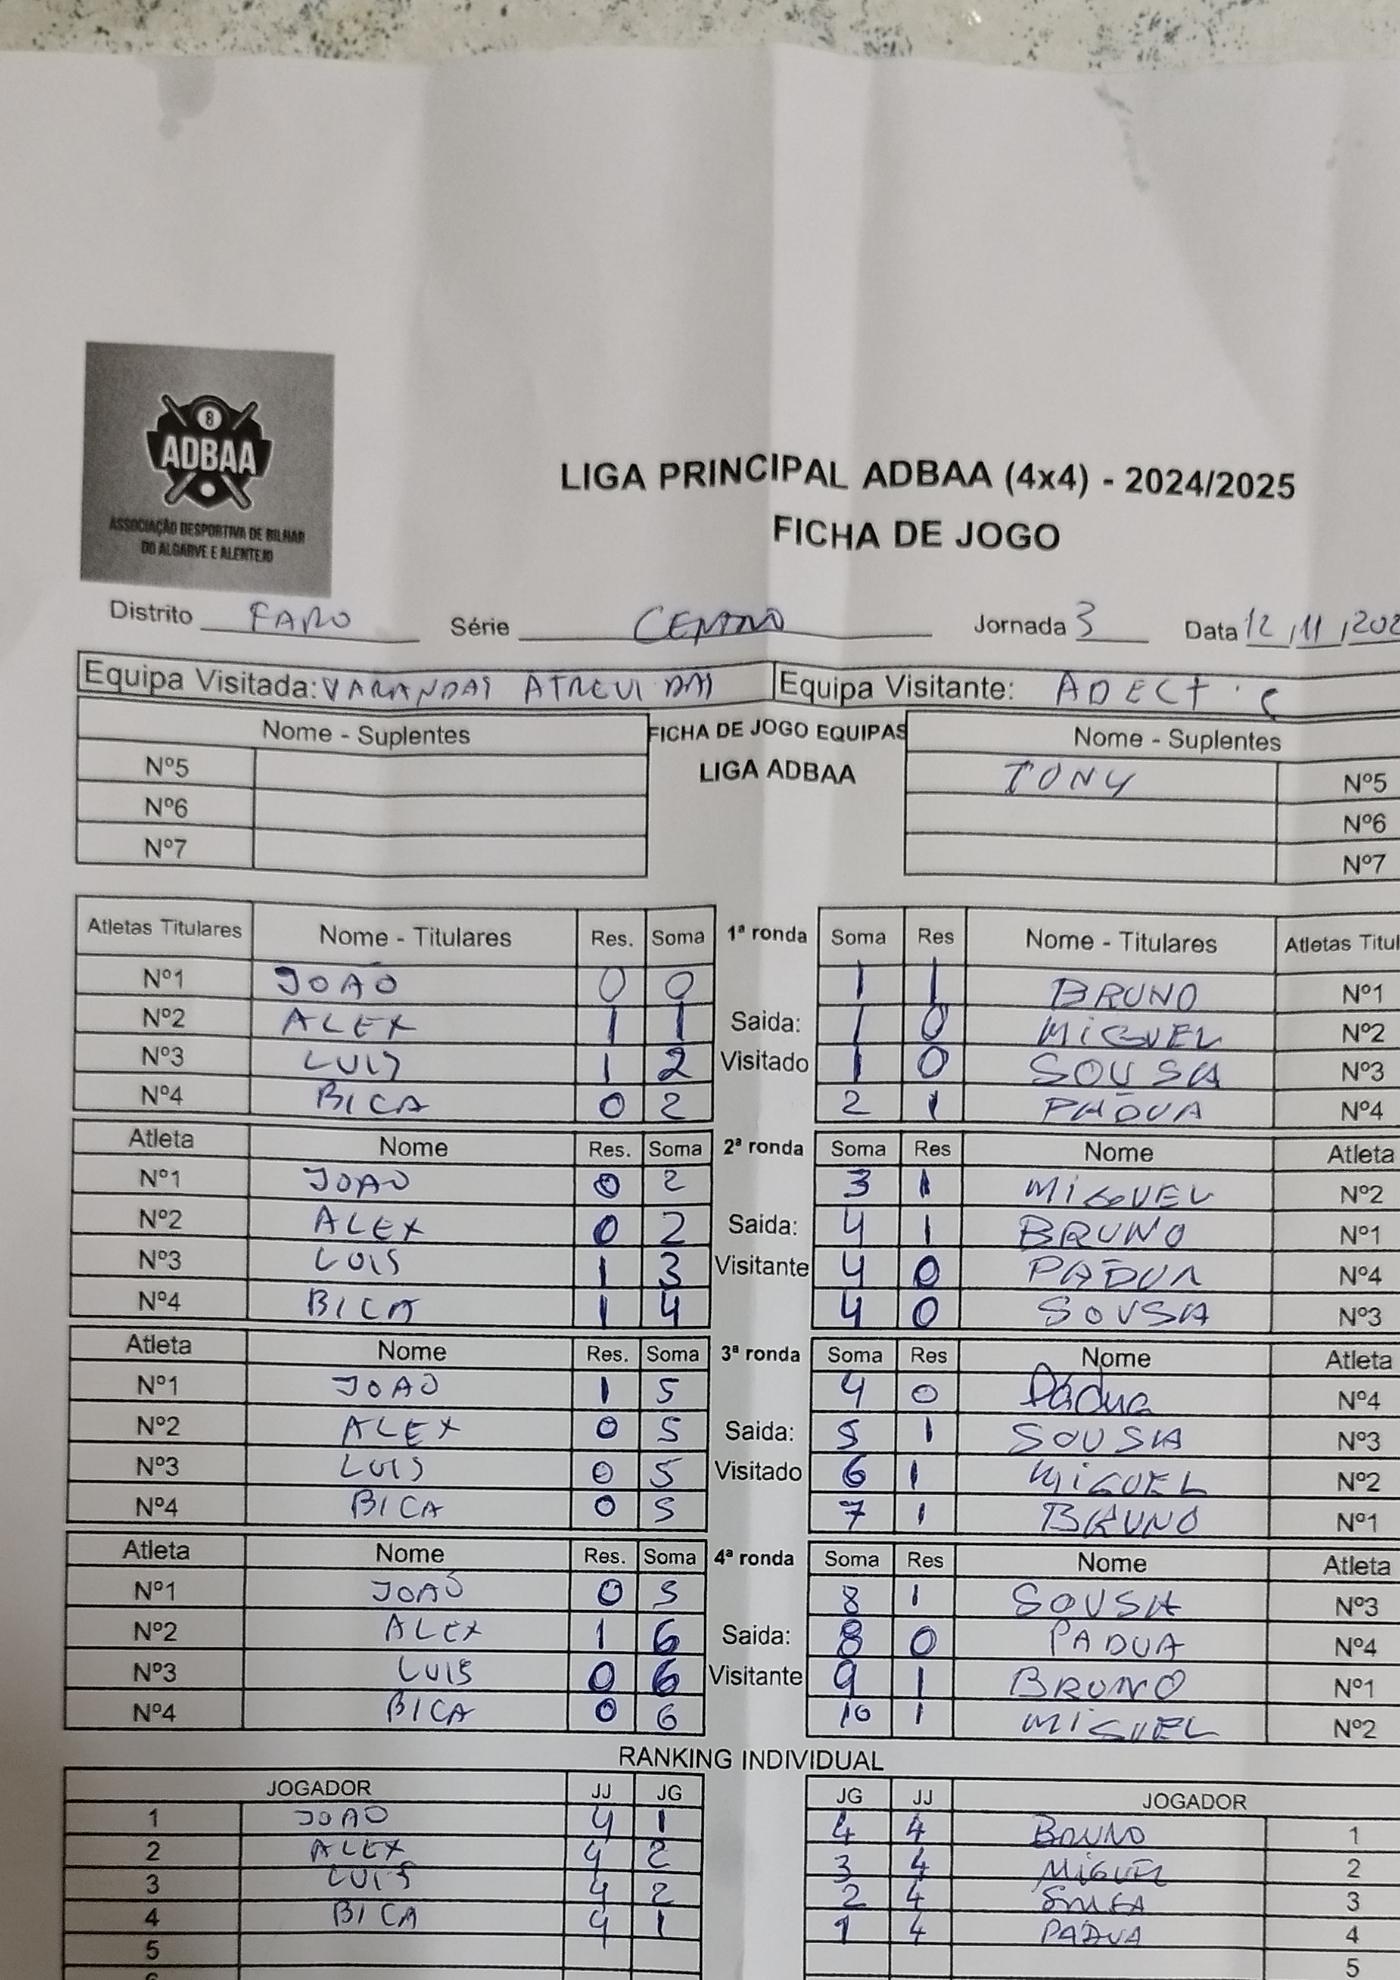 8
ADBAA
ASSOCIAÇÃO DESPORTIVA DE BILHAR
DO ALGARVE E ALENTEJO
LIGA PRINCIPAL ADBAA (4x4) - 2024/2025
FICHA DE JOGO
Distrito FARO Série CENTRO Jornada 3 Data 12/11/202
Equipa Visitada: VARANDAS ATREVIDAS Equipa Visitante: ADECT'S
Nome - Suplentes FICHA DE JOGO EQUIPAS Nome - Suplentes
Nº5 LIGA ADBAA TONY Nº5
Nº6 Nº6
Nº7 Nº7
Atletas Titulares Nome - Titulares Res. Soma 1ª ronda Soma Res Nome - Titulares Atletas Titul
Nº1 JOÃO 0 0 1 1 BRUNO Nº1
Nº2 ALEX 1 1 Saida: 1 0 MIGUEL Nº2
Nº3 LUIS 1 2 Visitado 1 0 SOUSA Nº3
Nº4 BICA 0 2 2 1 PÁDUA Nº4
Atleta Nome Res. Soma 2ª ronda Soma Res Nome Atleta
Nº1 JOAO 0 2 3 1 MIGUEL Nº2
Nº2 ALEX 0 2 Saida: 4 1 BRUNO Nº1
Nº3 LUIS 1 3 Visitante 4 0 PADUA Nº4
Nº4 BICA 1 4 4 0 SOUSA Nº3
Atleta Nome Res. Soma 3ª ronda Soma Res Nome Atleta
Nº1 JOAO 1 5 4 0 Pádua Nº4
Nº2 ALEX 0 5 Saida: 5 1 SOUSA Nº3
Nº3 LUIS 0 5 Visitado 6 1 MIGUEL Nº2
Nº4 BICA 0 5 7 1 BRUNO Nº1
Atleta Nome Res. Soma 4ª ronda Soma Res Nome Atleta
Nº1 JOAO 0 5 8 1 SOUSA Nº3
Nº2 ALEX 1 6 Saida: 8 0 PADUA Nº4
Nº3 LUIS 0 6 Visitante 9 1 BRUNO Nº1
Nº4 BICA 0 6 10 1 MIGUEL Nº2
RANKING INDIVIDUAL
JOGADOR JJ JG JG JJ JOGADOR
1 JOAO 4 1 4 4 BRUNO 1
2 ALEX 4 2 3 4 MIGUEL 2
3 LUIS 4 2 2 4 3
4 BICA 4 1 1 4 PADUA 4
5 5